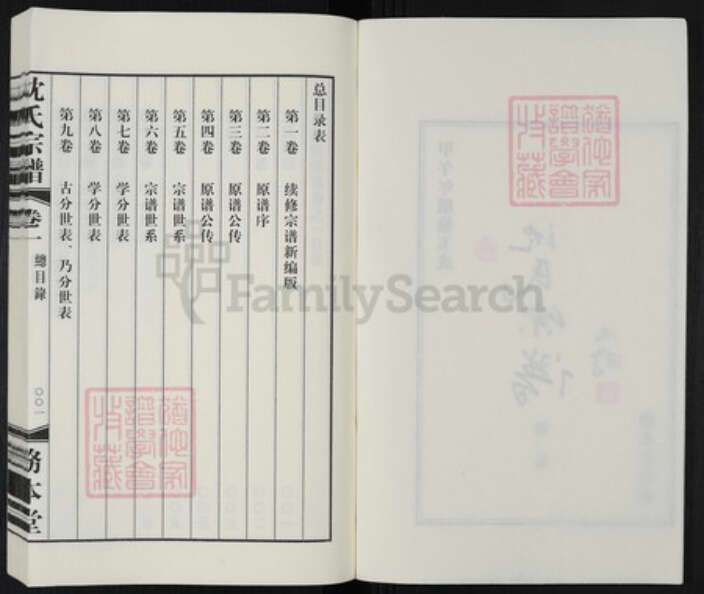 总目录表
第一卷 续修宗谱新编版
第二卷 原谱序
第三卷 原谱公传
第四卷 原谱公传
第五卷 宗谱世系
第六卷 宗谱世系
第七卷 学分世表
第八卷 学分世表
第九卷 古分世表、乃分世表
沈氏宗譜
卷一 總目錄
〇〇一
務本堂
FamilySearch